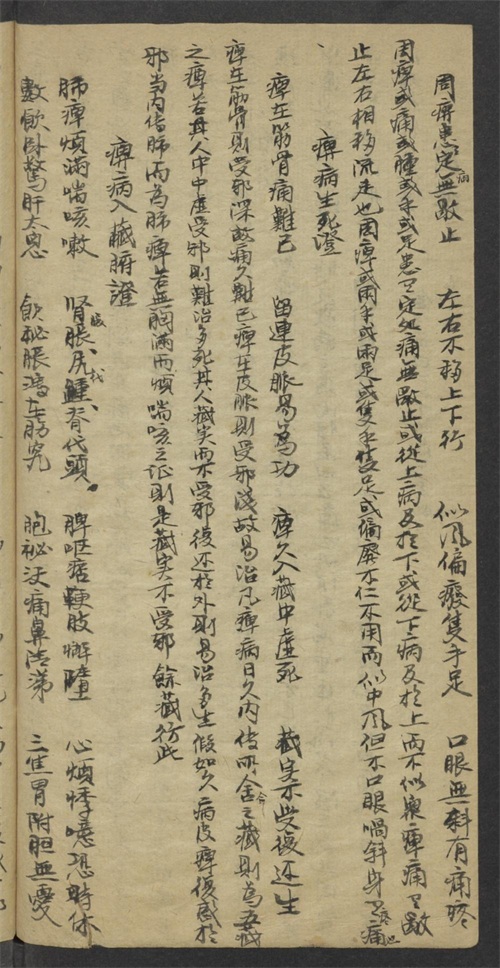 周痺患定無歇止　左右不移上下行　似風偏癈隻手足　口眼無斜有痛疼
周痺或痛或腫或手或足患有定処痛無歇止或從上病及於下或從下病及於上而不似衆痺痛有歇
止左右相移流走也周痺或両手或両足或隻手隻足或偏廢不仁不用而似中風但不口眼喎斜身有疼痛也
痺病生死證
痺在筋骨痛難已　留連皮脈易為功　痺久入藏中虛死　藏実不受復還生
痺在筋骨則受邪深故痛久難已痺在皮脈則受邪浅故易治凡痺病日久內傳所合之藏則為五藏
之痺若其人中虛受邪則難治多死其人藏実而不受邪復還於外則易治多生假如久病皮痺復感於
邪当內傳肺而為肺痺若無胸滿而煩喘咳之証則是藏実不受邪餘藏倣此
痺病入藏腑證
肺痺煩滿喘咳嗽　腎脹尻踵脊代頭　脾呕痞鞕肢懈墮　心煩悸噫恐時休
數飲卧驚肝太息　飲祕脹瀉在腸究　胞祕沃痛鼻清涕　三焦胃附胆無憂